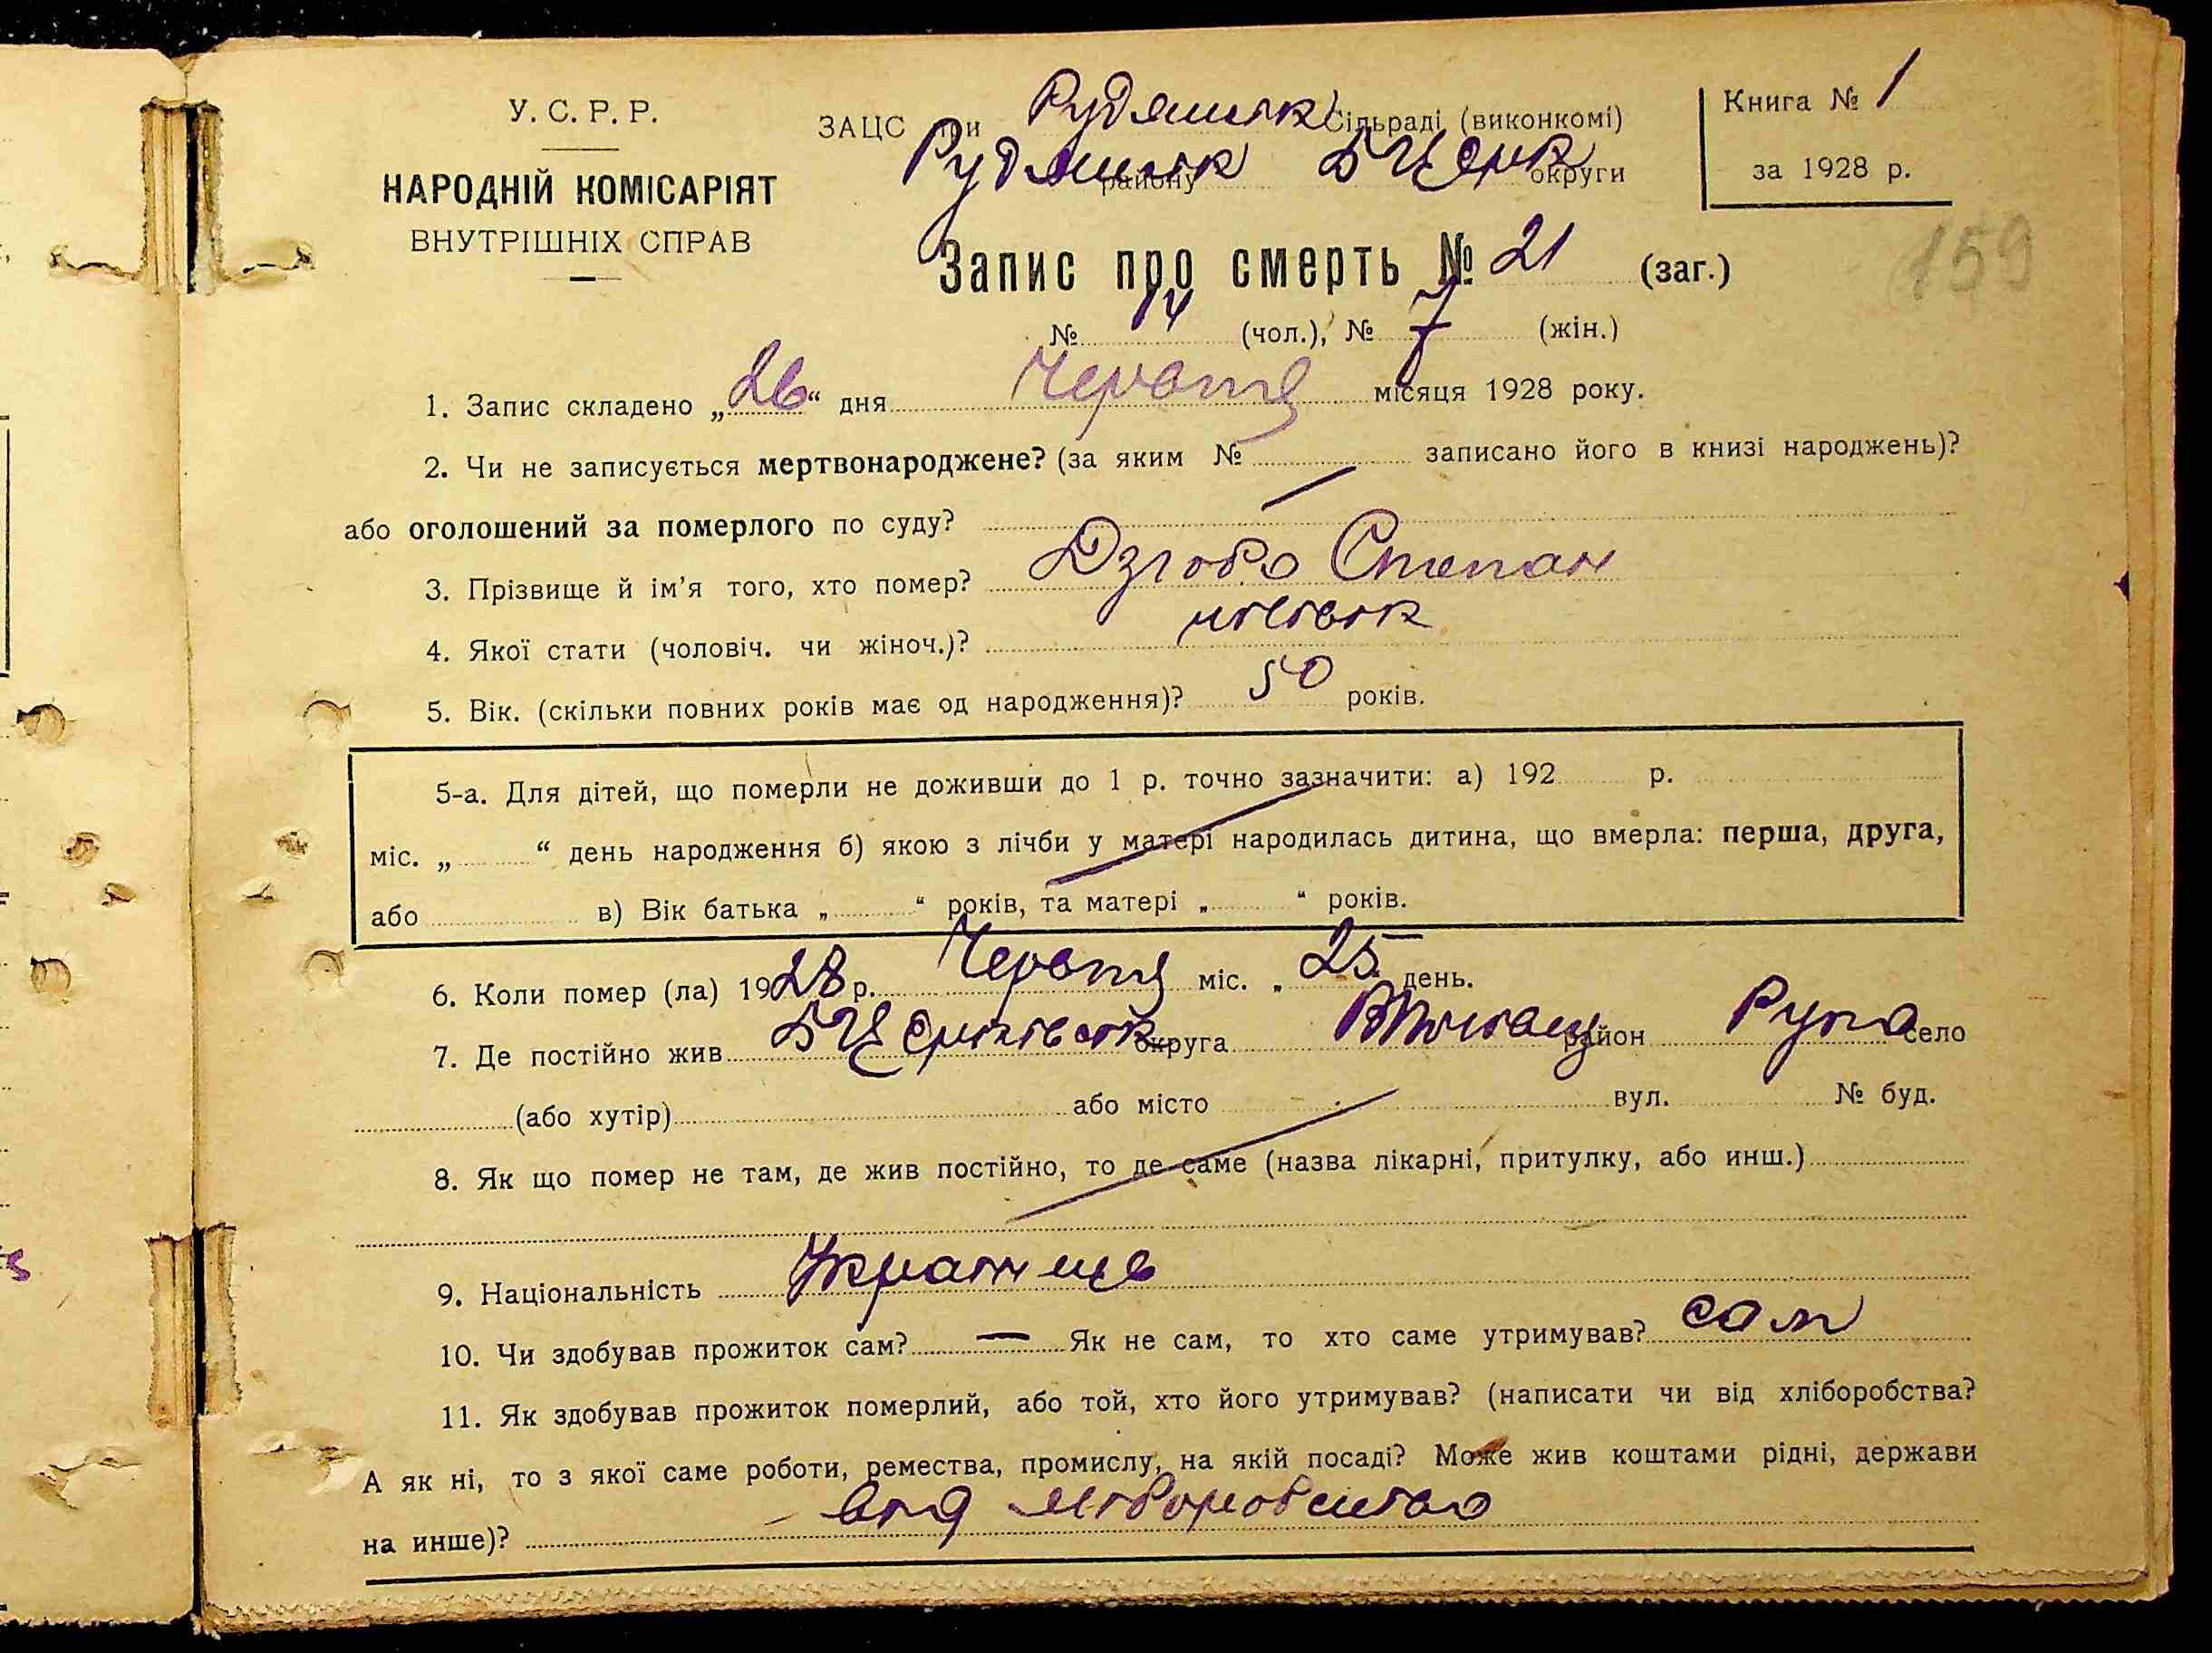 У. С. Р. Р.
НАРОДНІЙ КОМІСАРІЯТ
ВНУТРІШНІХ СПРАВ
ЗАЦС при Рудянськ Сільраді (виконкомі)
району БЦерк округи
Книга № 1
за 1928 р.
159
Запис про смерть № 21 (заг.)
№ 14 (чол.), № 7 (жін.)
1. Запис складено „26“ дня Червття місяця 1928 року.
2. Чи не записується мертвонароджене? (за яким № записано його в книзі народжень)?
або оголошений за померлого по суду?
3. Прізвище й ім’я того, хто помер? Дзюба Степан
4. Якої стати (чоловіч. чи жіноч.)? чоловік
5. Вік. (скільки повних років має од народження)? 50 років.
5-а. Для дітей, що померли не доживши до 1 р. точно зазначити: а) 192 р.
міс. „ “ день народження б) якою з лічби у матері народилась дитина, що вмерла: перша, друга,
або в) Вік батька „ “ років, та матері „ “ років.
6. Коли помер (ла) 1928 р. міс. „ 25 день.
7. Де постійно жив округа район село
(або хутір) або місто вул. № буд.
8. Як що помер не там, де жив постійно, то де саме (назва лікарні, притулку, або инш.)
9. Національність Українець
10. Чи здобував прожиток сам? — Як не сам, то хто саме утримував? сам
11. Як здобував прожиток померлий, або той, хто його утримував? (написати чи від хліборобства?
А як ні, то з якої саме роботи, ремества, промислу, на якій посаді? Може жив коштами рідні, держави
на инше)? від хліборобства